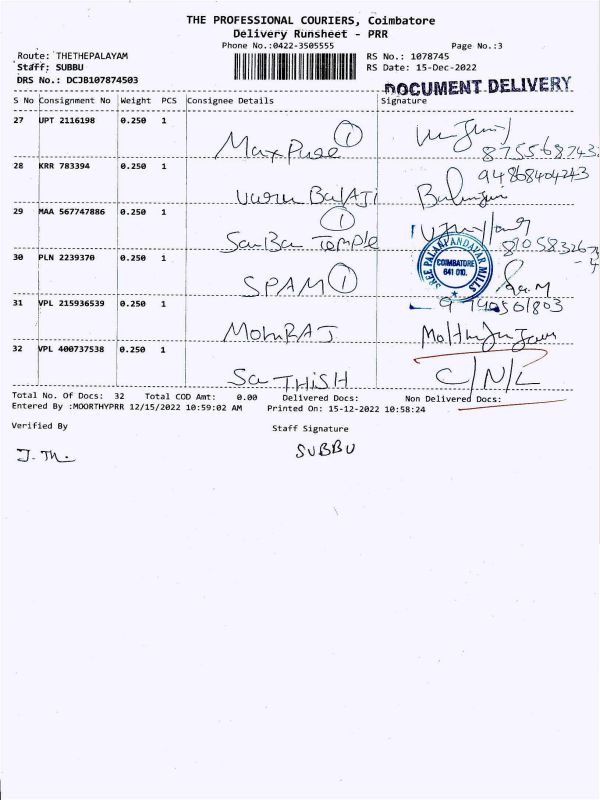 THE PROFESSIONAL COURIERS, Coimbatore
Delivery Runsheet - PRR
Phone No.:0422-3505555 Page No.:3
Route: THETHEPALAYAM RS No.: 1078745
Staff: SUBBU RS Date: 15-Dec-2022
DRS No.: DCJB107874503
DOCUMENT DELIVERY
S No Consignment No Weight PCS Consignee Details Signature
27 UPT 2116198 0.250 1
Max Pure 1
28 KRR 783394 0.250 1
94868404243
Varun BalAJI
29 MAA 567747886 0.250 1
1
Sai Ba Temple
30 PLN 2239370 0.250 1
SREE PALANI ANDAVAR MILLS
COIMBATORE
641 010.
SPAM 1
31 VPL 215936539 0.250 1
MohnRAJ
32 VPL 400737538 0.250 1
SaTHiSH C/N/L
Total No. Of Docs: 32 Total COD Amt: 0.00 Delivered Docs: Non Delivered Docs:
Entered By :MOORTHYPRR 12/15/2022 10:59:02 AM Printed On: 15-12-2022 10:58:24
Verified By Staff Signature
SUBBU